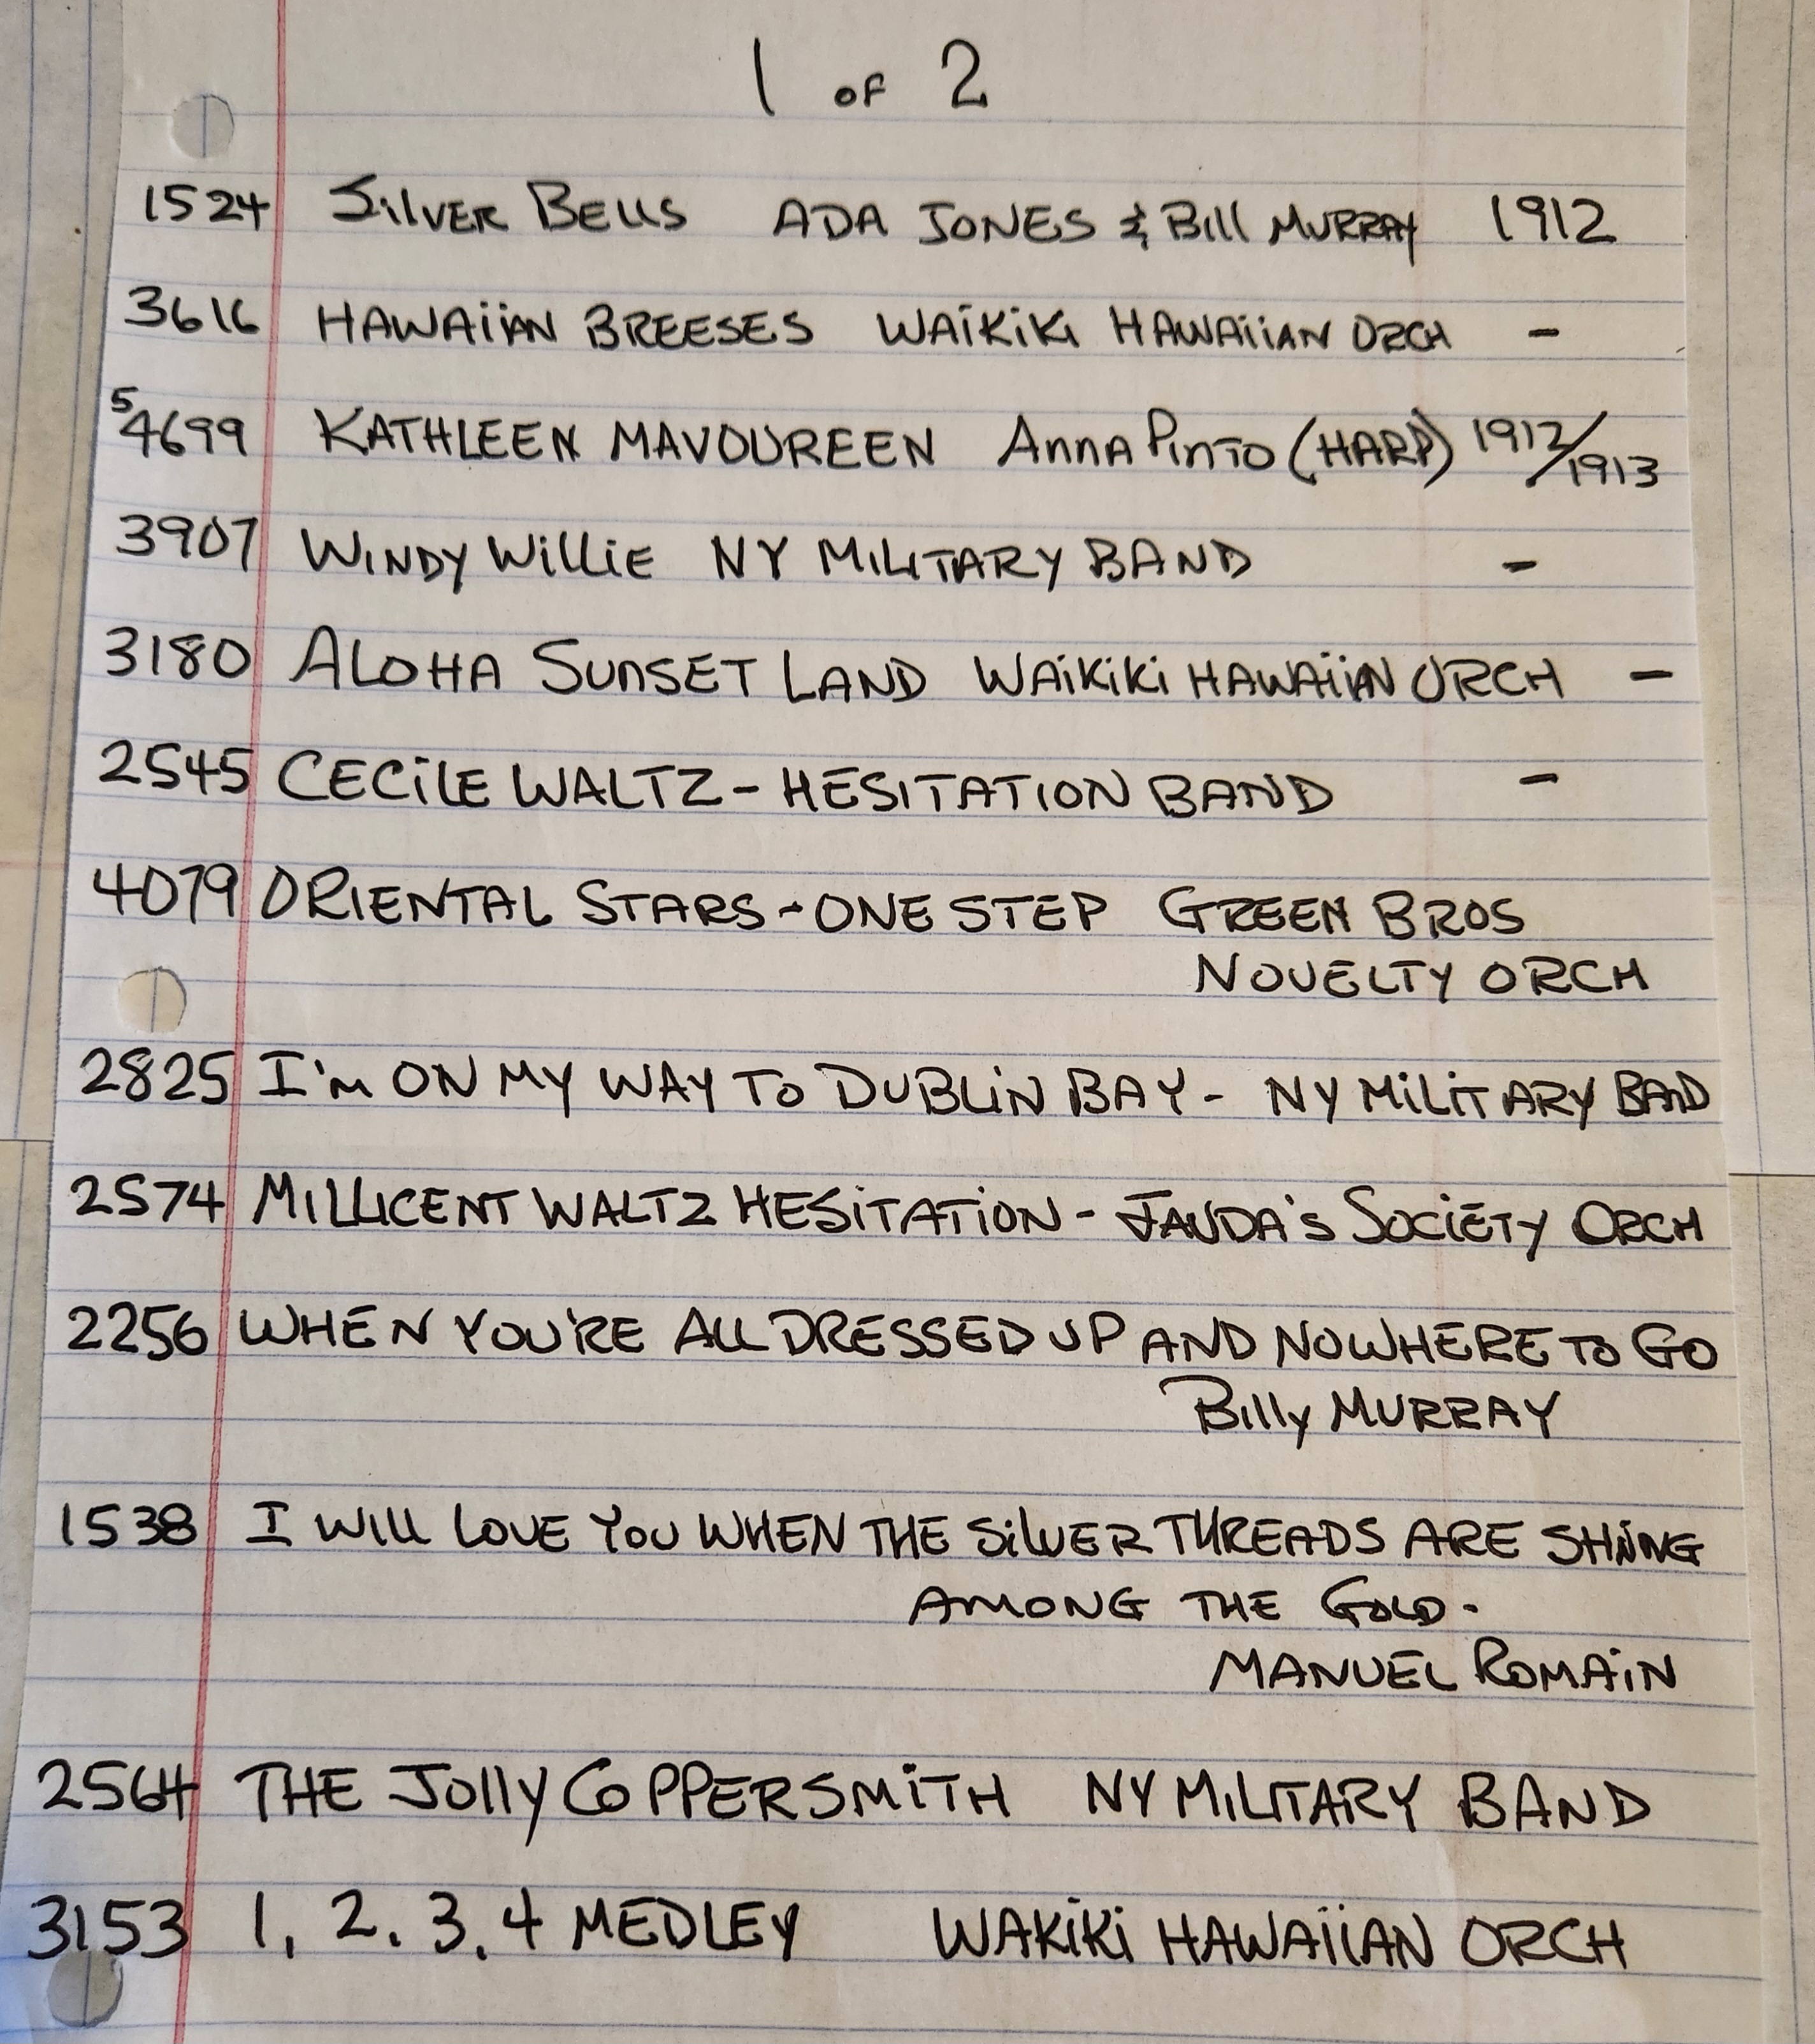 1 OF 2
1524 SILVER BELLS ADA JONES & Bill MURRAY 1912
3616 HAWAIIAN BREESES WAIKIKI HAWAIIAN ORCH -
5 4699 KATHLEEN MAVOUREEN Anna Pinto (HARP) 1912/1913
3907 WINDY WILLIE NY MILITARY BAND -
3180 ALOHA SUNSET LAND WAIKIKI HAWAIIAN ORCH -
2545 CECILE WALTZ - HESITATION BAND -
4079 ORIENTAL STARS - ONE STEP GREEN BROS
NOVELTY ORCH
2825 I'm ON MY WAY TO DUBLIN BAY - NY MILITARY BAND
2574 MILLICENT WALTZ HESITATION - JAUDA'S SOCIETY ORCH
2256 WHEN YOU'RE ALL DRESSED UP AND NOWHERE TO GO
Billy MURRAY
1538 I WILL LOVE YOU WHEN THE SILVER THREADS ARE SHINING
AMONG THE GOLD -
MANUEL ROMAIN
2564 THE JOLLY COPPERSMITH NY MILITARY BAND
3153 1, 2, 3, 4 MEDLEY WAKIKI HAWAIIAN ORCH